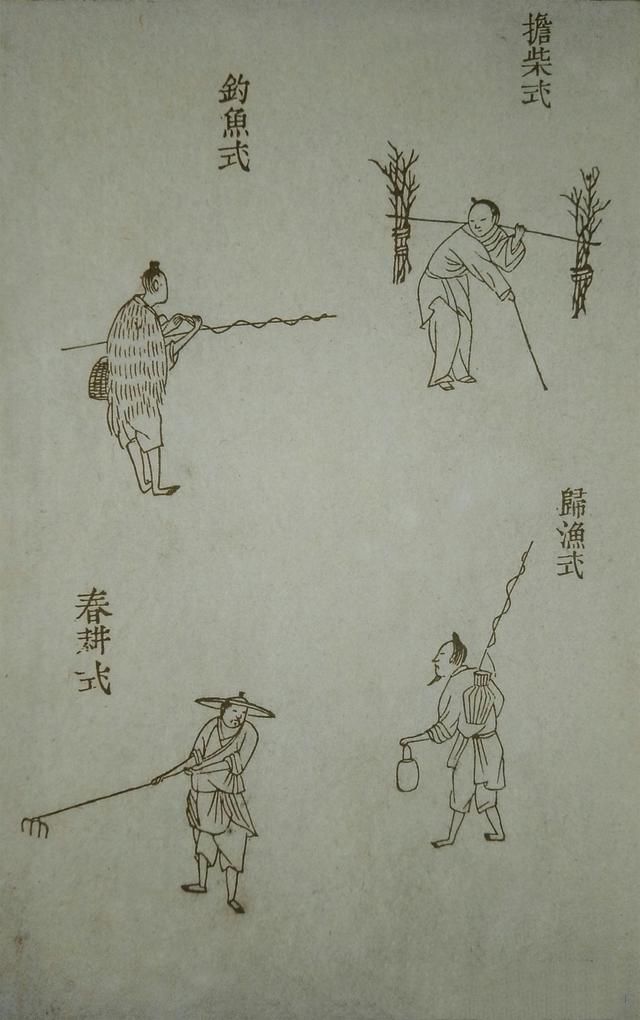 擔柴式
釣魚式
歸漁式
春耕式